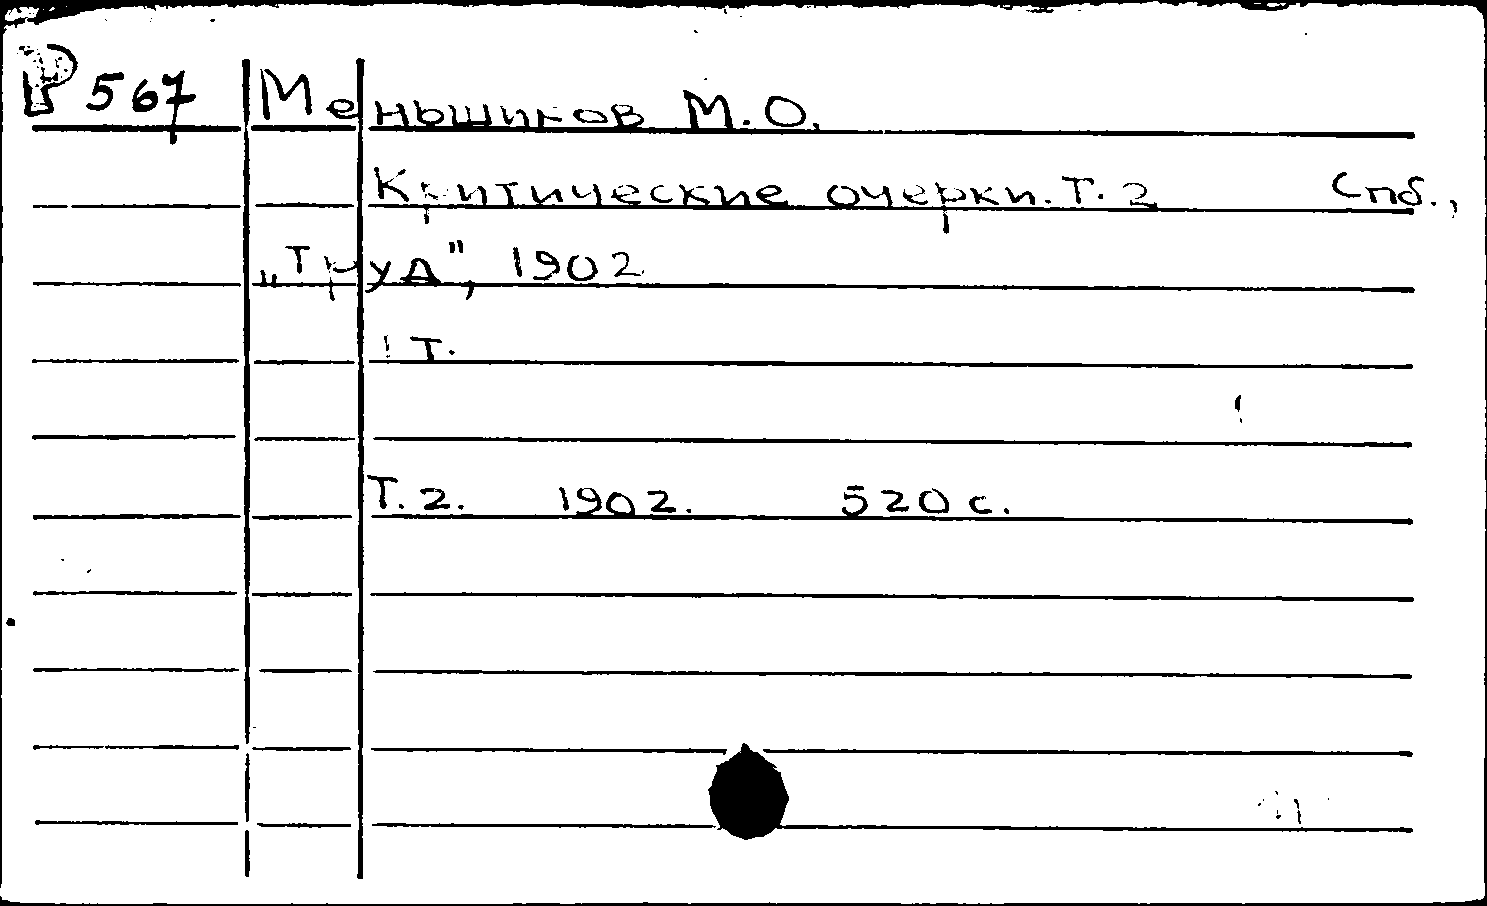 Р 567 Меньшиков М.О.
Критические очерки. Т. 2 Спб.,
„Труд", 1902
1 т.
Т. 2. 1902. 520 с.